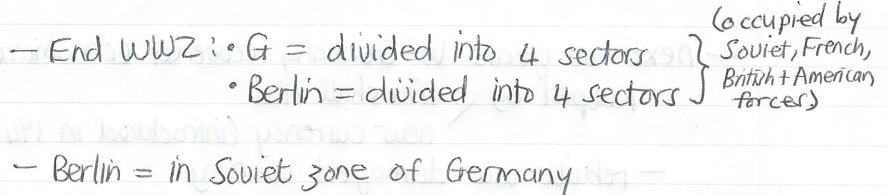 - End WW2: • G = divided into 4 sectors
• Berlin = divided into 4 sectors
(occupied by
Soviet, French,
British + American
forces)
- Berlin = in Soviet zone of Germany